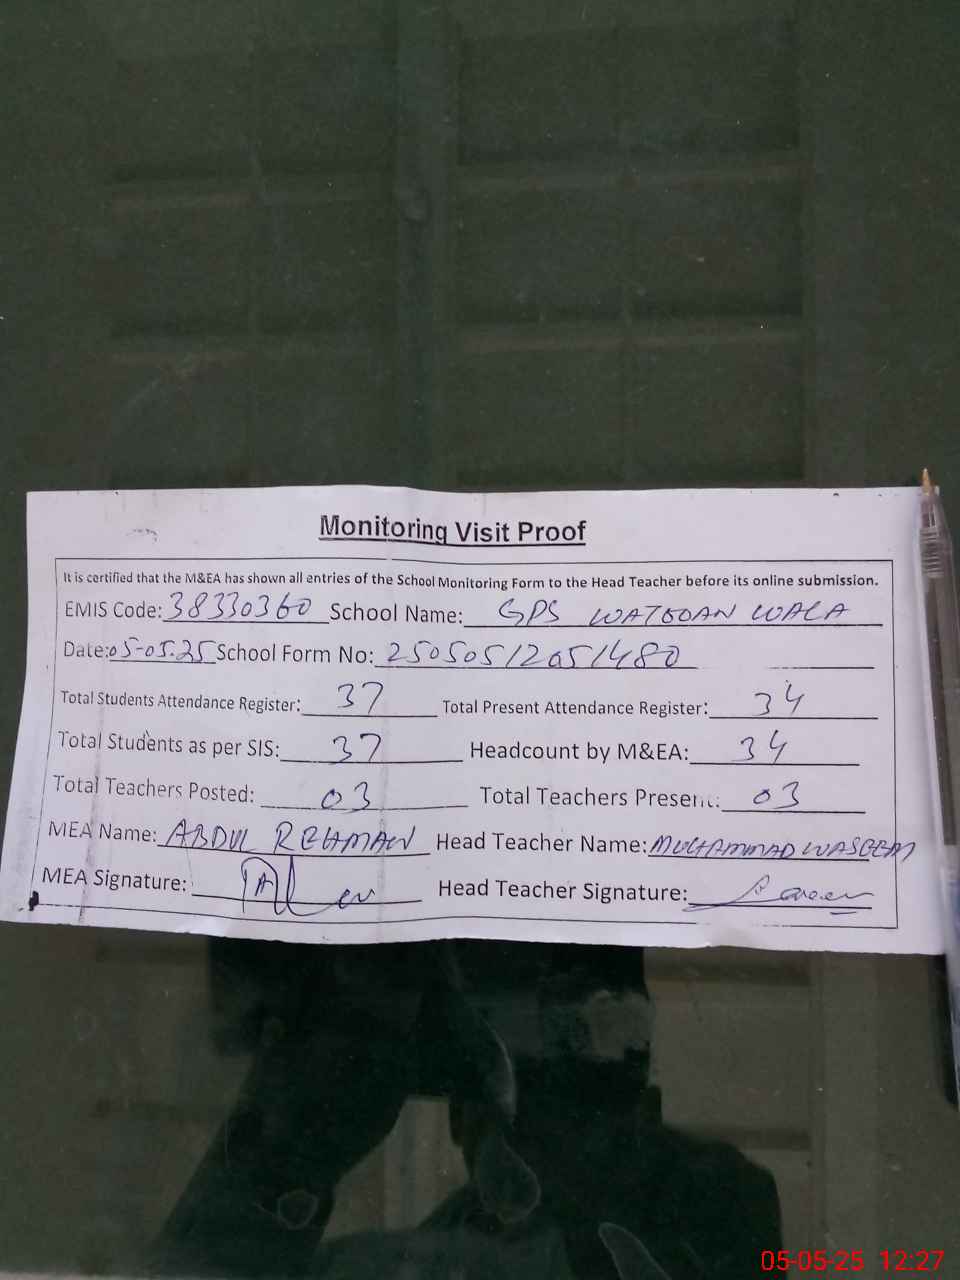 Monitoring Visit Proof
It is certified that the M&EA has shown all entries of the School Monitoring Form to the Head Teacher before its online submission.
EMIS Code: 38330360 School Name: GPS WATOOAN WALA
Date: 05-05.25 School Form No: 25050512051480
Total Students Attendance Register: 37 Total Present Attendance Register: 34
Total Students as per SIS: 37 Headcount by M&EA: 34
Total Teachers Posted: 03 Total Teachers Present: 03
MEA Name: ABDUL REHMAN Head Teacher Name: MUHAMMAD WASEEM
MEA Signature: Head Teacher Signature:
05-05-25 12:27